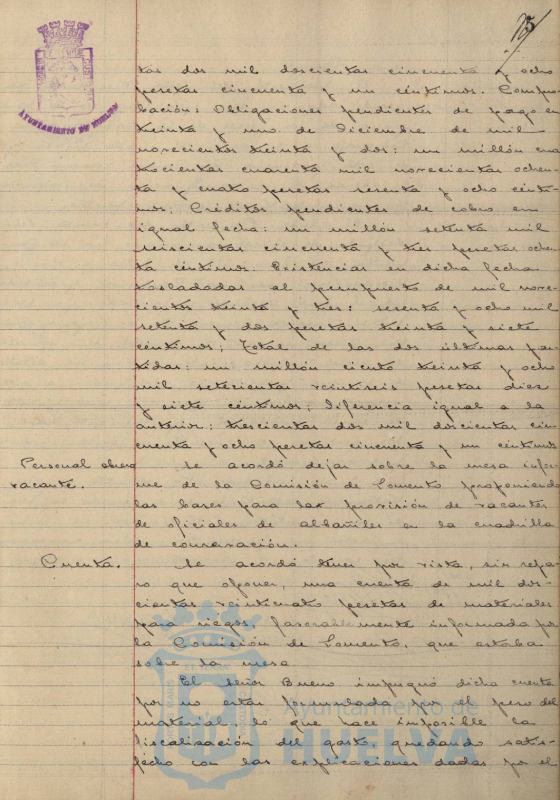 75
AYUNTAMIENTO DE HUELVA
tas dos mil doscientas cincuenta y ocho
pesetas cincuenta y un céntimos. Compro-
bación: Obligaciones pendientes de pago en
treinta y uno de Diciembre de mil
novecientos treinta y dos: un millón cua
trocientas cuarenta mil novecientas ochen-
ta y cuatro pesetas sesenta y ocho cénti-
mos; Créditos pendientes de cobro en
igual fecha: un millón setenta mil
seiscientas cincuenta y tres pesetas ochen-
ta céntimos: Existencias en dicha fecha
trasladadas al presupuesto de mil nove-
cientos treinta y tres: sesenta y ocho mil
setenta y dos pesetas treinta y siete
céntimos; Total de las dos últimas par-
tidas: un millón ciento treinta y ocho
mil setecientas veintiseis pesetas diez
y siete céntimos; Diferencia igual a la
anterior: trescientas dos mil doscientas cin-
cuenta y ocho pesetas cincuenta y un céntimos
Personal obrero
vacante.
Se acordó dejar sobre la mesa infor-
me de la Comisión de Fomento proponiendo
las bases para la provisión de vacantes
de oficiales de albañiles en la cuadrilla
de conservación.
Cuenta.
Se acordó tener por vista, sin repa-
ro que oponer, una cuenta de mil dos-
cientas veinticuatro pesetas de materiales
para riegos, favorablemente informada por
la Comisión de Fomento, que estaba
sobre la mesa
El señor Bueno impugnó dicha cuenta
por no estar el peso del
material, lo que hace imposible la
fiscalización del gasto, quedando satis-
fecho con las explicaciones dadas por el
Ayuntamiento de
HUELVA